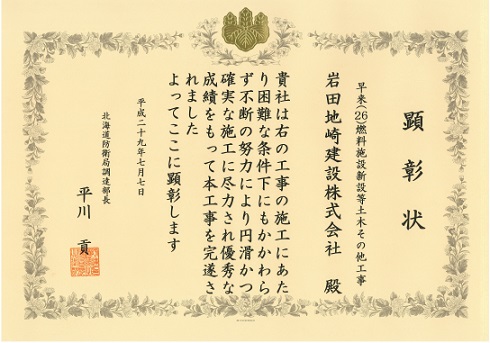 顕彰状
早来(26)燃料施設新設等土木その他工事
岩田地崎建設株式会社 殿
貴社は右の工事の施工にあた
り困難な条件下にもかかわら
ず不断の努力により円滑かつ
確実な施工に尽力され優秀な
成績をもって本工事を完遂さ
れました
よってここに顕彰します
平成二十九年七月七日
北海道防衛局調達部長
平川 貢